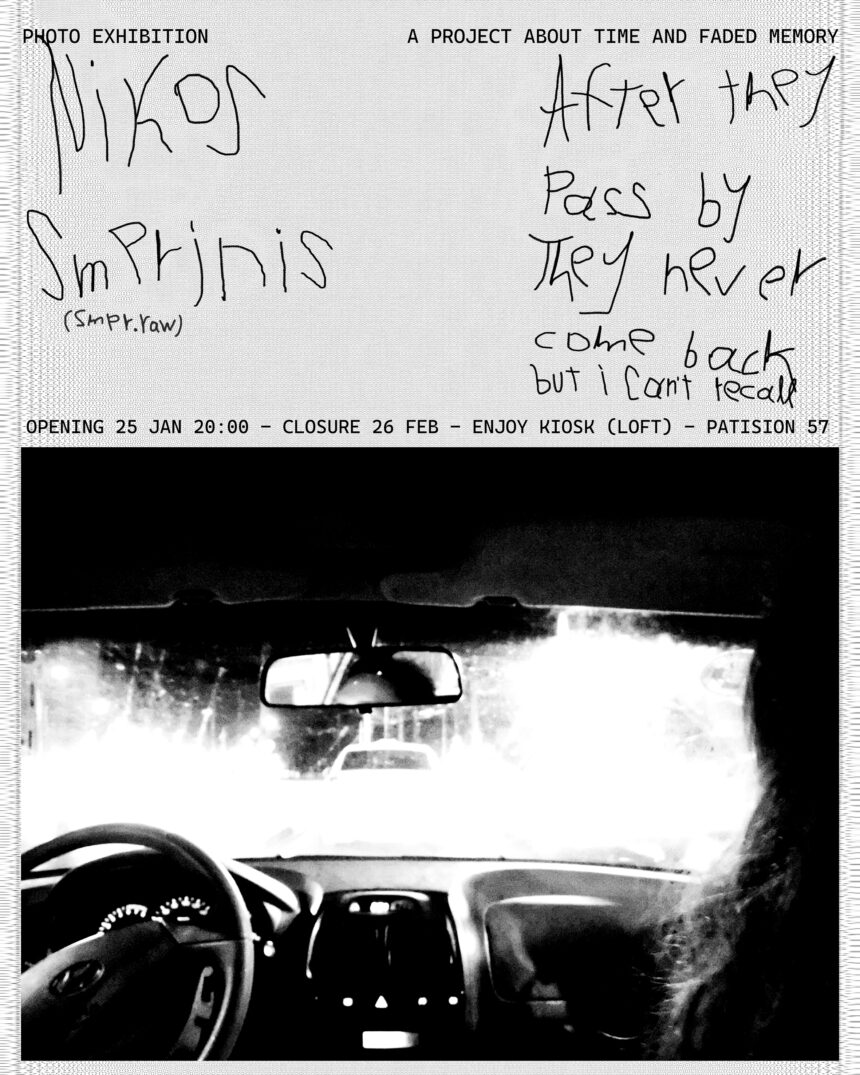 PHOTO EXHIBITION
A PROJECT ABOUT TIME AND FADED MEMORY
Nikos
Smprjnis
(Smpr.raw)
After they
Pass by
They never
come back
but i can't recall
OPENING 25 JAN 20:00 – CLOSURE 26 FEB – ENJOY KIOSK (LOFT) – PATISION 57